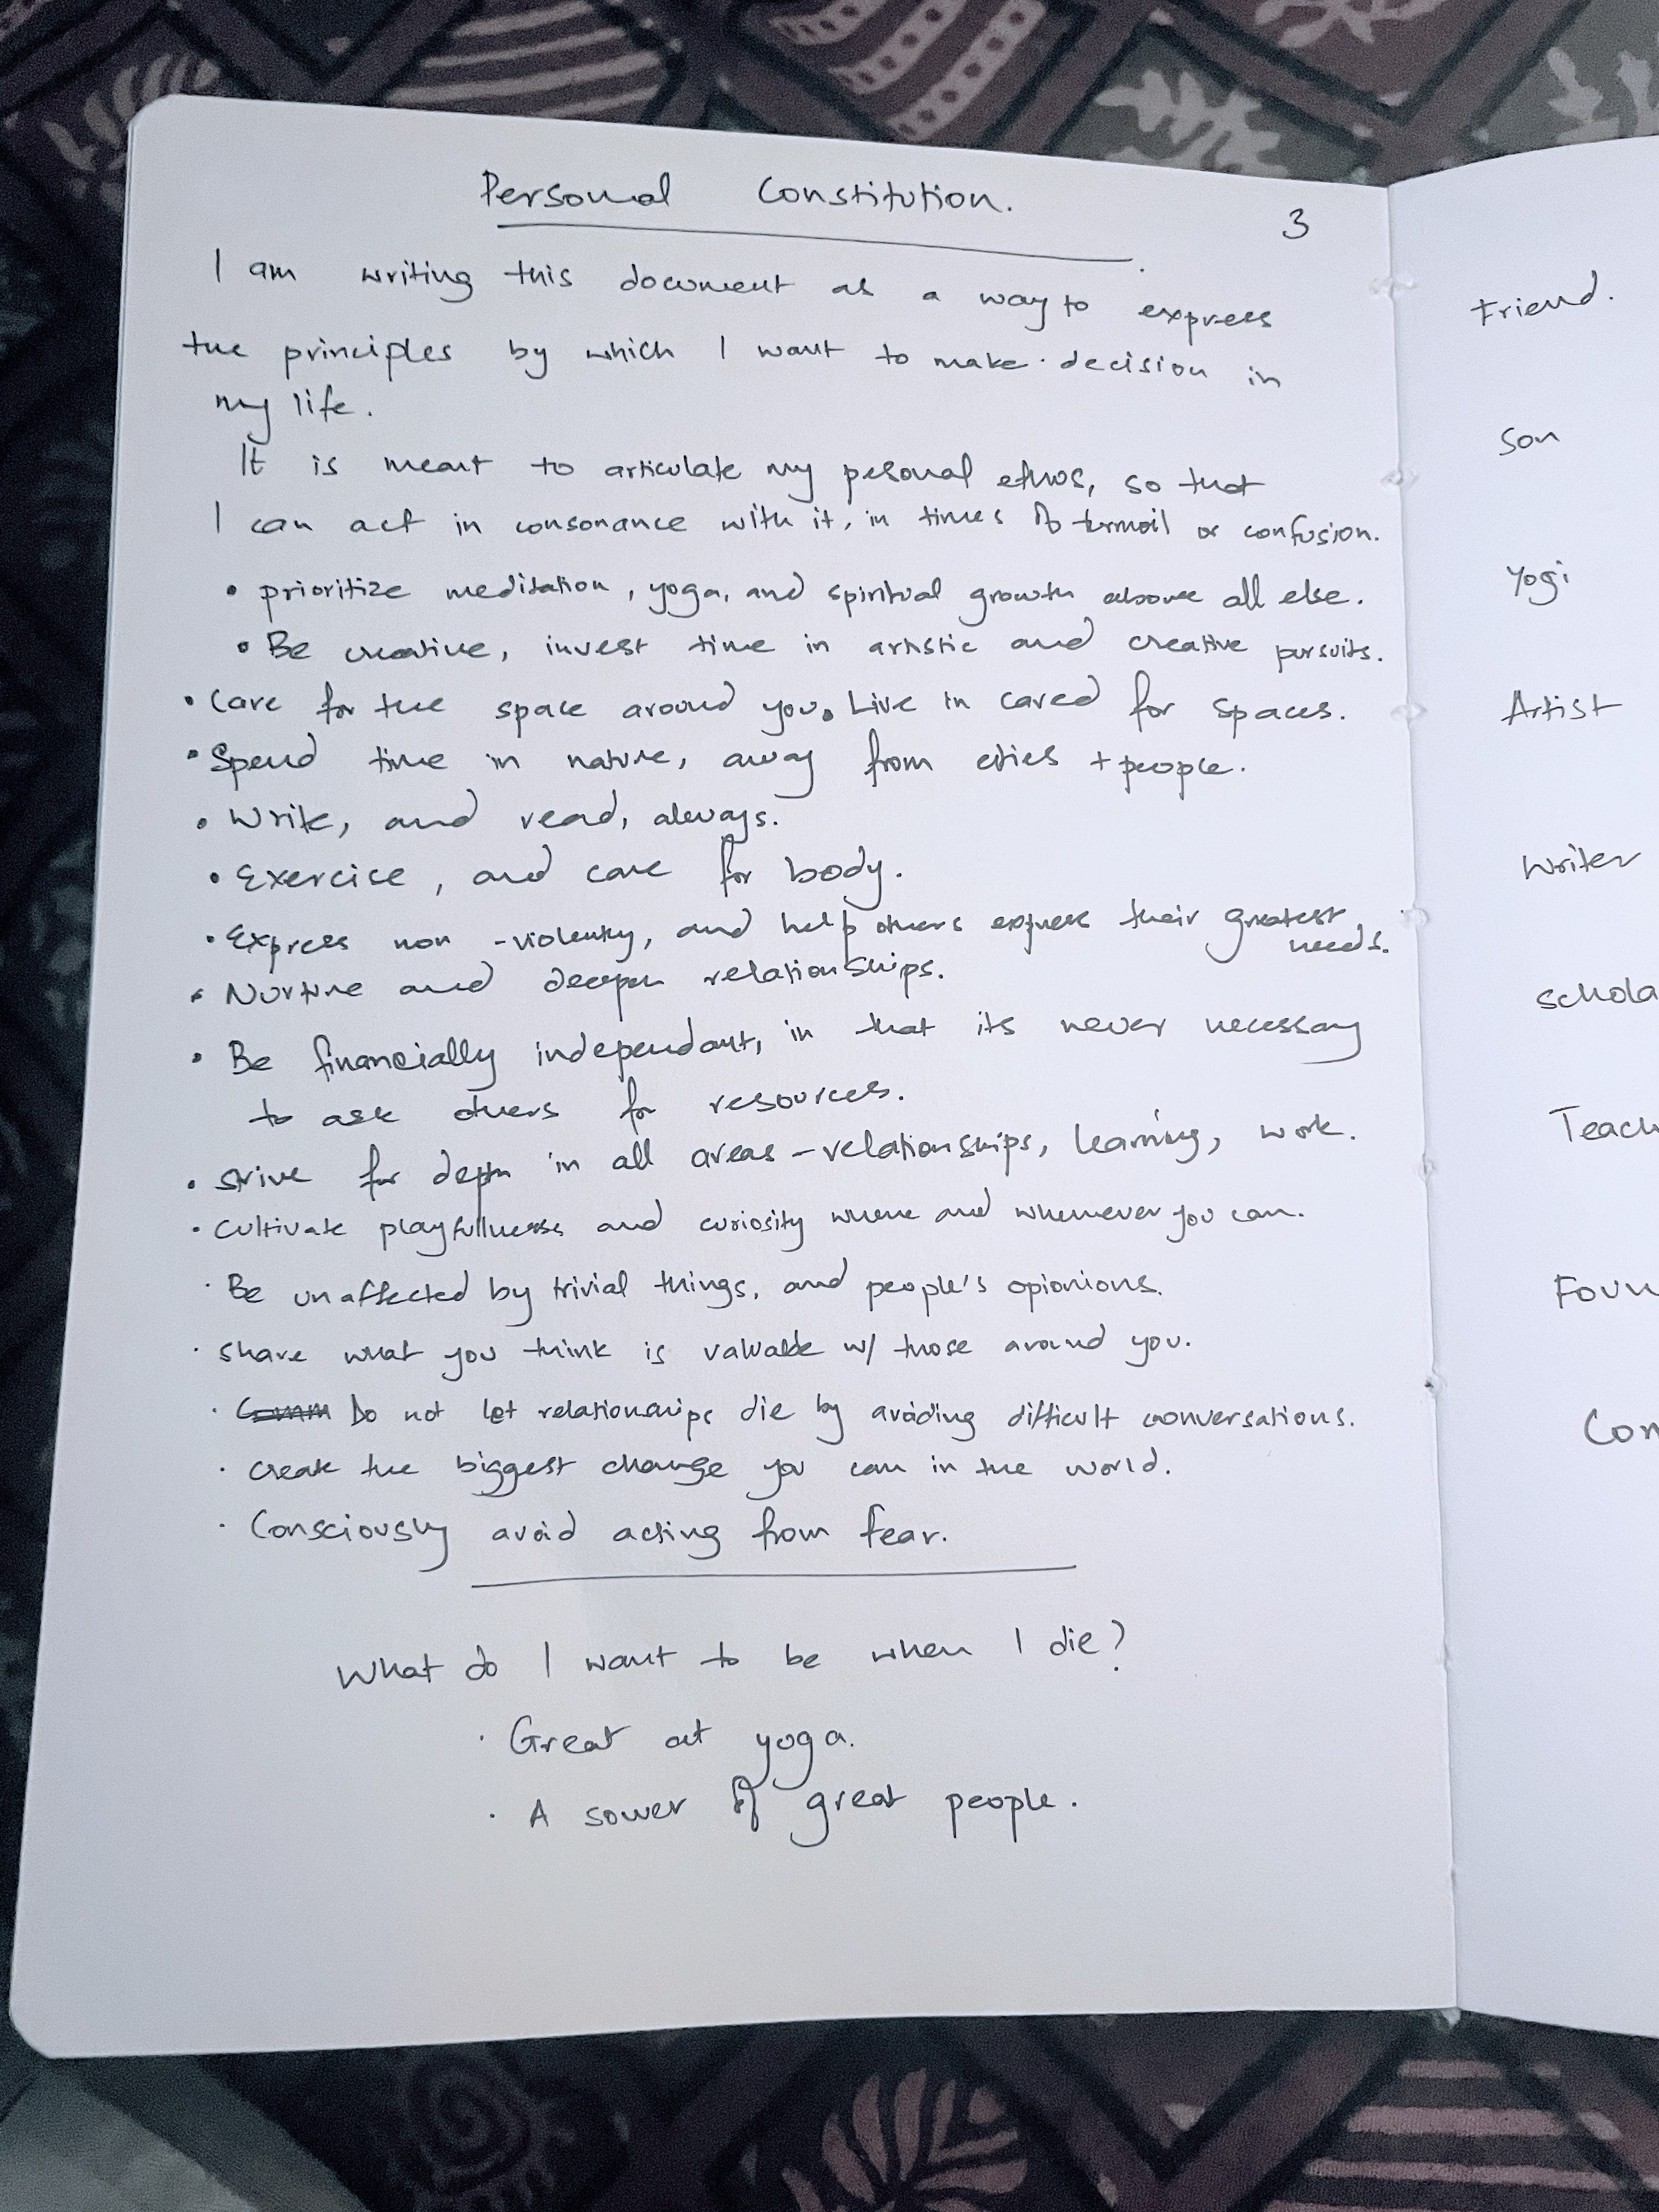 Personal Constitution.
3
I am writing this document as a way to express
the principles by which I want to make decision in
my life.
It is meant to articulate my pesonal ethos, so that
I can act in consonance with it, in times of turmoil or confusion.
• prioritize meditation, yoga, and spiritual growth above all else.
• Be creative, invest time in artistic and creative pursuits.
• Care for the space around you. Live in cared for spaces.
• Spend time in nature, away from cities + people.
• Write, and read, always.
• Exercise, and care for body.
• Express non-violently, and help others express their greatest
needs.
• Nurture and deepen relationships.
• Be financially independant, in that its never necessary
to ask others for resources.
• Strive for depth in all areas - relationships, learning, work.
• Cultivate playfullness and curiosity where and whenever you can.
• Be unaffected by trivial things, and people's opionions.
• Share what you think is valuable w/ those around you.
• Comm Do not let relationships die by avoiding difficult conversations.
• Create the biggest change you can in the world.
• Consciously avoid acting from fear.
What do I want to be when I die?
• Great at yoga.
• A sower of great people.
Friend.
Son
Yogi
Artist
Writer
Schola
Teach
Foun
Com